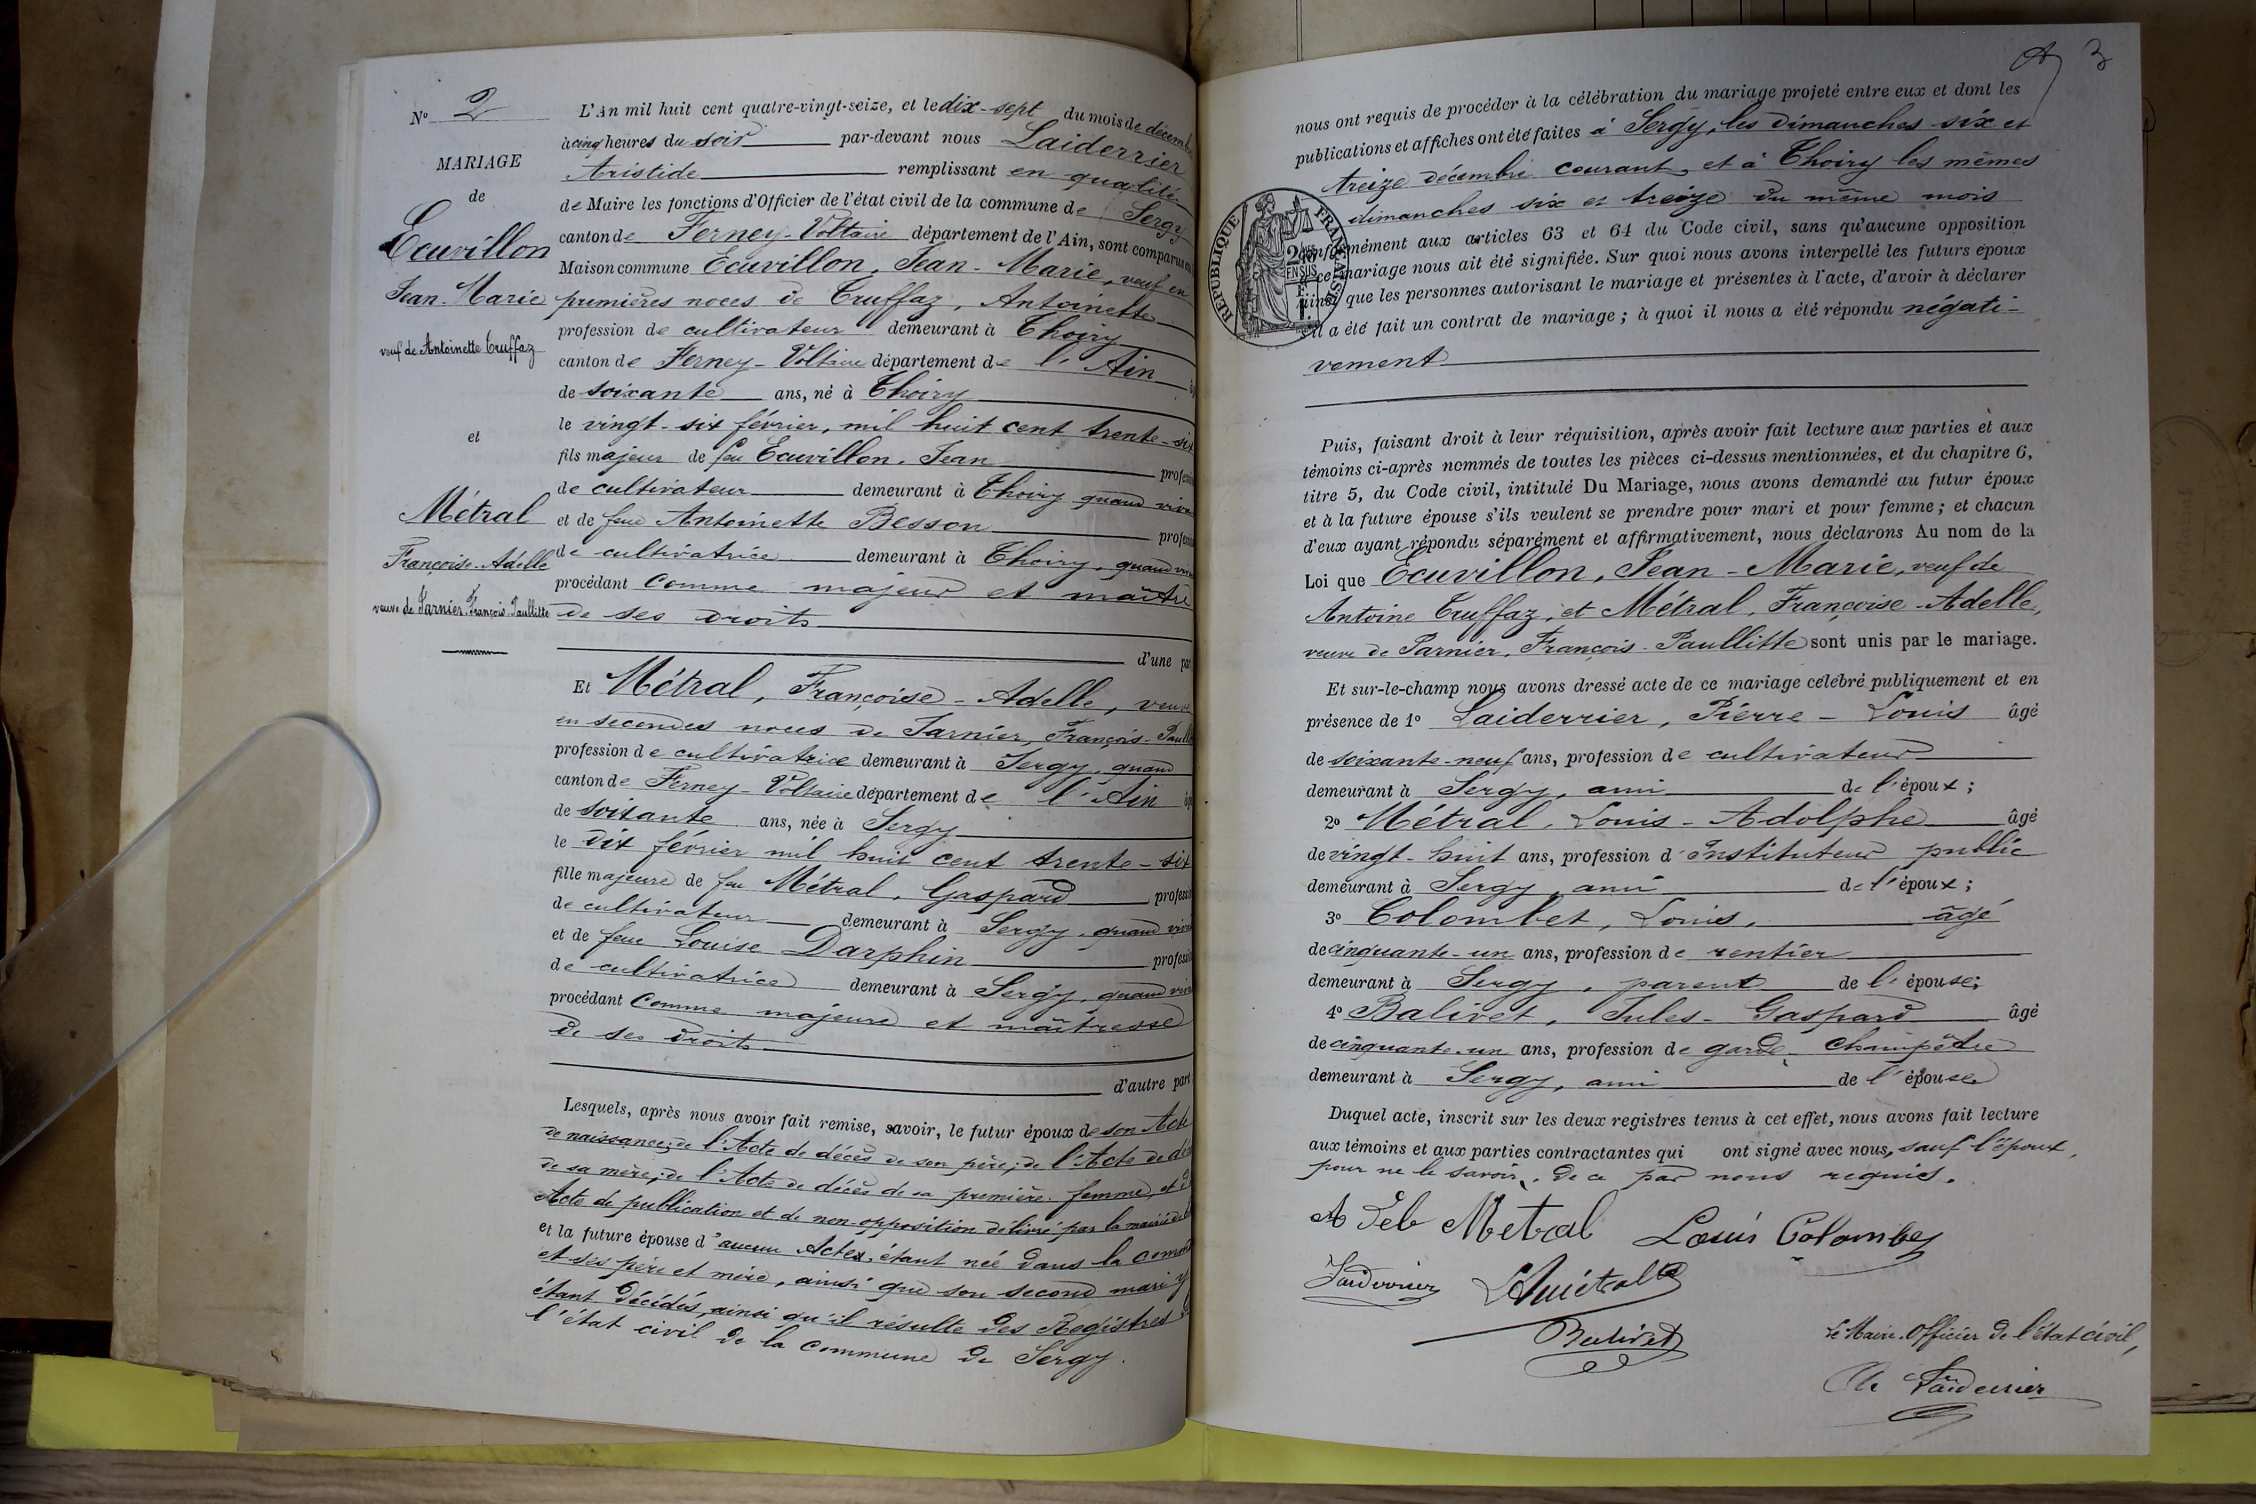 N° 2
MARIAGE
de
Ecuvillon
Jean-Marie
veuf de Antoinette Truffaz
et
Métral
Françoise-Adelle
veuve de Parnier François-Paullitte
L'An mil huit cent quatre-vingt-seize, et le dix-sept du mois de décemb
à cinq heures du soir par-devant nous Laiderrier
Aristide remplissant en qualité
de Maire les fonctions d'Officier de l'état civil de la commune de Sergy
canton de Ferney-Voltaire département de l'Ain, sont comparus en
Maison commune Ecuvillon, Jean-Marie, veuf en
premières noces de Truffaz, Antoinette
profession de cultivateur demeurant à Thoiry
canton de Ferney-Voltaire département de l'Ain
de soixante ans, né à Thoiry
le vingt-six février, mil huit cent trente-six
fils majeur de feu Ecuvillon, Jean profess
de cultivateur demeurant à Thoiry quand viv
et de feue Antoinette Besson profess
de cultivatrice demeurant à Thoiry, quand viv
procédant comme majeur et maître
de ses droits
d'une par
Et Métral, Françoise-Adelle, veuve
en secondes noces de Parnier, François-Paull
profession de cultivatrice demeurant à Sergy, quand
canton de Ferney-Voltaire département de l'Ain
de soixante ans, née à Sergy
le dix février mil huit cent trente-six
fille majeure de feu Métral, Gaspard profess
de cultivateur demeurant à Sergy, quand viv
et de feue Louise Darphin profess
de cultivatrice demeurant à Sergy, quand viv
procédant comme majeure et maîtresse
de ses droits
d'autre part
Lesquels, après nous avoir fait remise, savoir, le futur époux de son Acte
de naissance; de l'Acte de décès de son père; de l'Acte de dé
de sa mère; de l'Acte de décès de sa première femme, et d
Acte de publication et de non-opposition délivré par la mairie de
et la future épouse d'aucun Actes, étant née dans la comm
et ses père et mère, ainsi que son second mari y
étant décédés ainsi qu'il résulte des Registres d
l'état civil de la commune de Sergy.
3
nous ont requis de procéder à la célébration du mariage projeté entre eux et dont les
publications et affiches ont été faites à Sergy, les dimanches six et
treize décembre courant, et à Thoiry les mêmes
dimanches six et treize du même mois
conformément aux articles 63 et 64 du Code civil, sans qu'aucune opposition
à ce mariage nous ait été signifiée. Sur quoi nous avons interpellé les futurs époux
ainsi que les personnes autorisant le mariage et présentes à l'acte, d'avoir à déclarer
s'il a été fait un contrat de mariage; à quoi il nous a été répondu négati-
vement
RÉPUBLIQUE FRANÇAISE
2/10
EN SUS
Puis, faisant droit à leur réquisition, après avoir fait lecture aux parties et aux
témoins ci-après nommés de toutes les pièces ci-dessus mentionnées, et du chapitre 6,
titre 5, du Code civil, intitulé Du Mariage, nous avons demandé au futur époux
et à la future épouse s'ils veulent se prendre pour mari et pour femme; et chacun
d'eux ayant répondu séparément et affirmativement, nous déclarons Au nom de la
Loi que Ecuvillon, Jean-Marie, veuf de
Antoine Truffaz, et Métral, Françoise-Adelle,
veuve de Parnier, François-Paullitte sont unis par le mariage.
Et sur-le-champ nous avons dressé acte de ce mariage célébré publiquement et en
présence de 1° Laiderrier, Pierre-Louis âgé
de soixante-neuf ans, profession de cultivateur
demeurant à Sergy, ami de l'époux;
2° Métral, Louis-Adolphe âgé
de vingt-huit ans, profession d'Instituteur public
demeurant à Sergy, ami de l'époux;
3° Colombet, Louis, âgé
de cinquante-un ans, profession de rentier
demeurant à Sergy, parent de l'épouse;
4° Balivet, Jules-Gaspard âgé
de cinquante-un ans, profession de garde-champêtre
demeurant à Sergy, ami de l'épouse
Duquel acte, inscrit sur les deux registres tenus à cet effet, nous avons fait lecture
aux témoins et aux parties contractantes qui ont signé avec nous, sauf l'époux,
pour ne le savoir, de ce par nous requis.
A Deb Metral Louis Colombet
Laiderrier LAmétral
Balivet
Le Maire, Officier de l'état civil,
Laiderrier